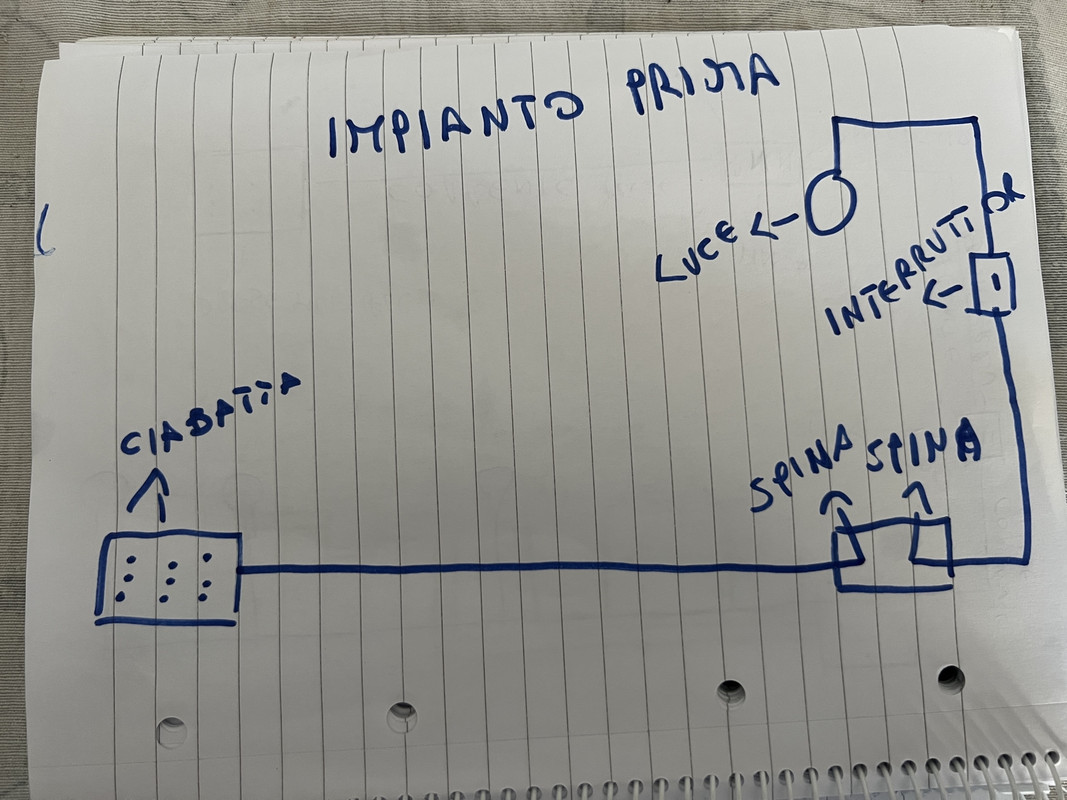 IMPIANTO PRIMA
LUCE
INTERRUTTOR
CIABATTA
SPINA SPINA